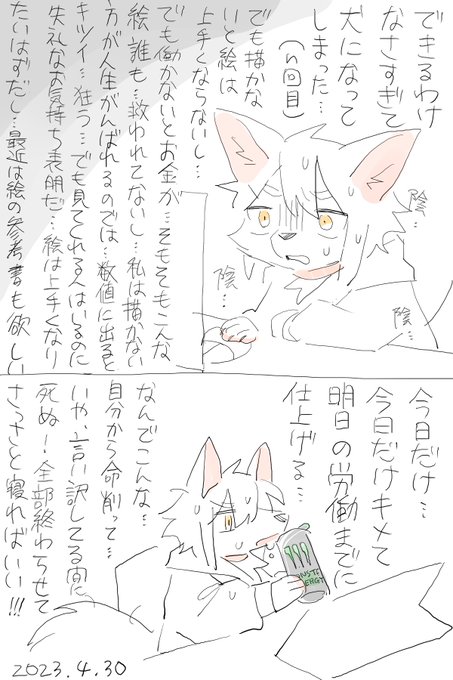 できるわけ
なさすぎて
犬になって
しまった…
(n回目)
でも描かな
いと絵は
上手くならないし…
でも働かないとお金が…そもそもこんな
絵誰も…救われてないし…私は描かない
方が人生がんばれるのでは…数値に出ると
キツイ…狂う…でも見てくれる人はいるのに
失礼なお気持ち表明だ…絵は上手くなり
たいはずだし…最近は絵の参考書も欲しい
陰…
陰…
陰…
今日だけ…
今日だけキメて
明日の労働までに
仕上げる…
なんでこんな…
自分から命削って…
いや、言い訳してる間に
死ぬ!全部終わらせて
さっさと寝ればいい!!!
2023.4.30